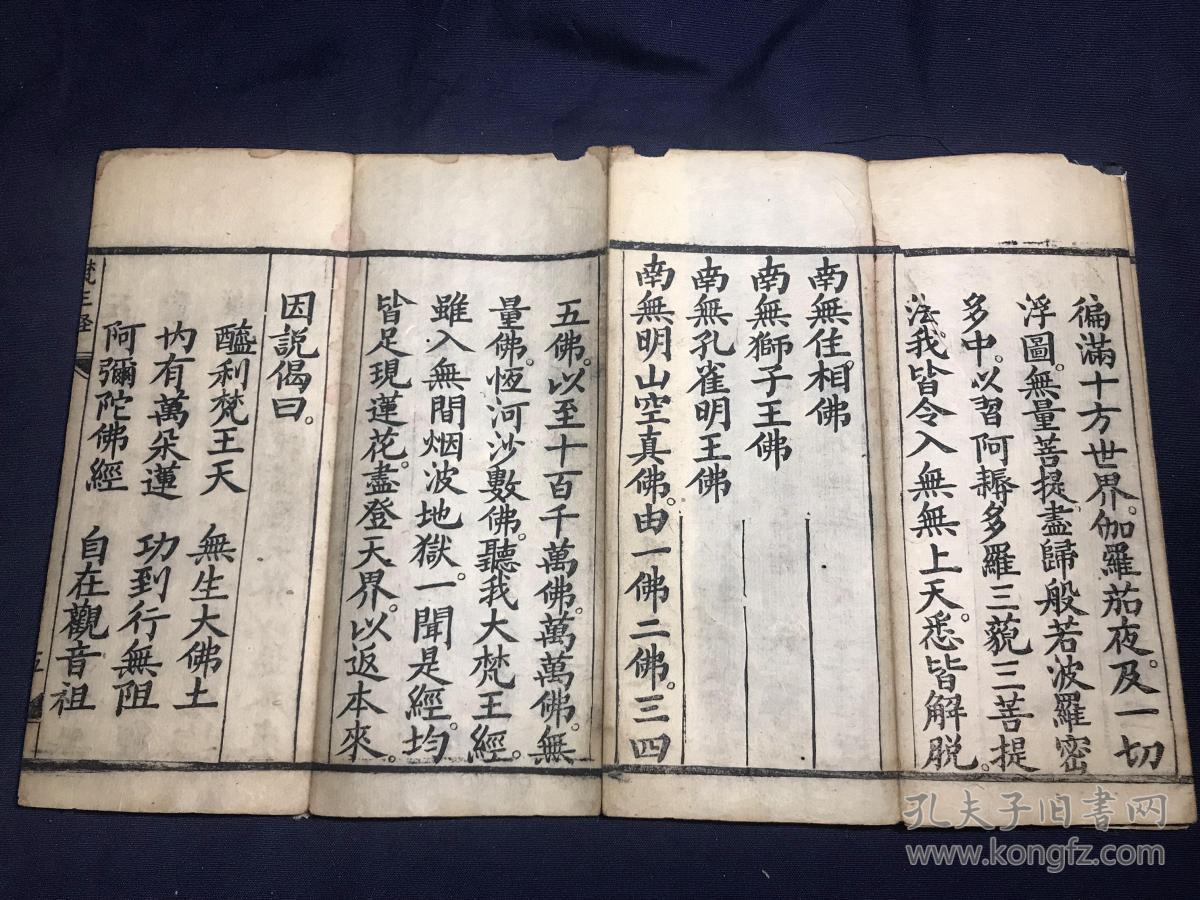 徧滿十方世界。伽羅茄夜。及一切
浮圖。無量菩提。盡歸般若波羅密
多中。以習阿耨多羅三藐三菩提
法。我皆令入無無上天。悉皆解脫。
南無住相佛
南無獅子王佛
南無孔雀明王佛
南無明山空真佛。由一佛二佛。三四
五佛。以至十百千萬佛。萬萬萬佛。無
量佛。恆河沙數佛。聽我大梵王經。
雖入無間烟波地獄。一聞是經。均
皆足現蓮花。盡登天界。以返本來。
因說偈曰。
醯利梵王天 無生大佛土
内有萬朵蓮 功到行無阻
阿彌陀佛經 自在觀音祖
梵王經
五
孔夫子旧書网
www.kongfz.com